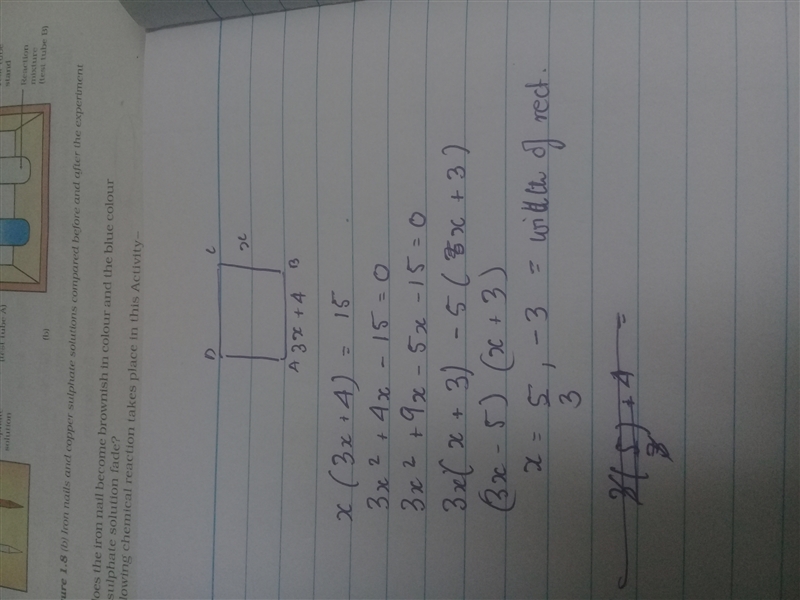 stand
Reaction
mixture
(test tube B)
solution
(b)
(b) Iron nails and copper sulphate solutions compared before and after the experiment
oes the iron nail become brownish in colour and the blue colour
sulphate solution fade?
lowing chemical reaction takes place in this Activity–
D C
x
A 3x + 4 B
x (3x + 4) = 15
3x² + 4x - 15 = 0
3x² + 9x - 5x - 15 = 0
3x( x + 3) - 5 ( x + 3 )
(3x - 5) (x + 3)
x = 5/3 , -3 = width of rect.
3(5/3) + 4 =